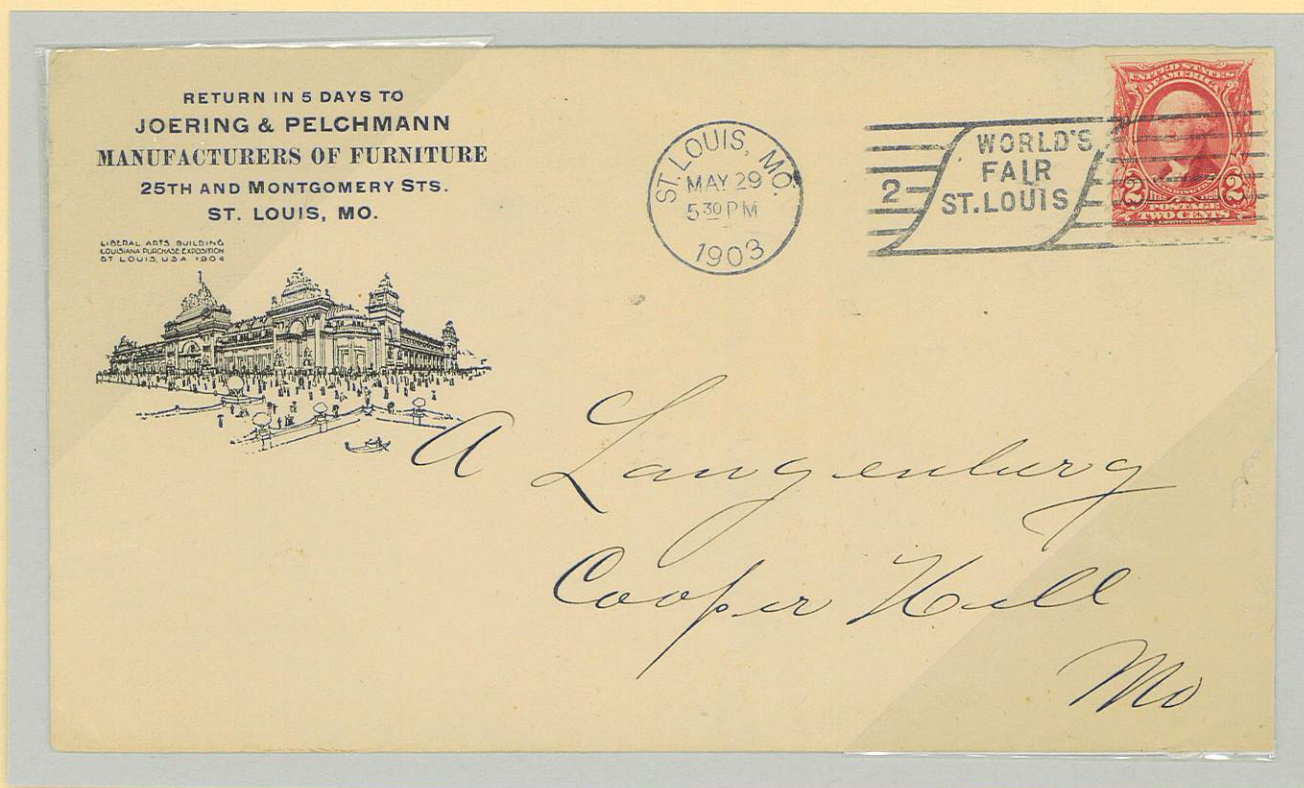 RETURN IN 5 DAYS TO
JOERING & PELCHMANN
MANUFACTURERS OF FURNITURE
25TH AND MONTGOMERY STS.
ST. LOUIS, MO.
LIBERAL ARTS BUILDING
LOUISIANA PURCHASE EXPOSITION
ST LOUIS, USA 1904
ST. LOUIS, MO.
MAY 29
5 30 PM
1903
2
WORLD'S
FAIR
ST. LOUIS
UNITED STATES
OF AMERICA
WASHINGTON
2 POSTAGE 2
TWO CENTS
A Langenburg
Cooper Hill
Mo